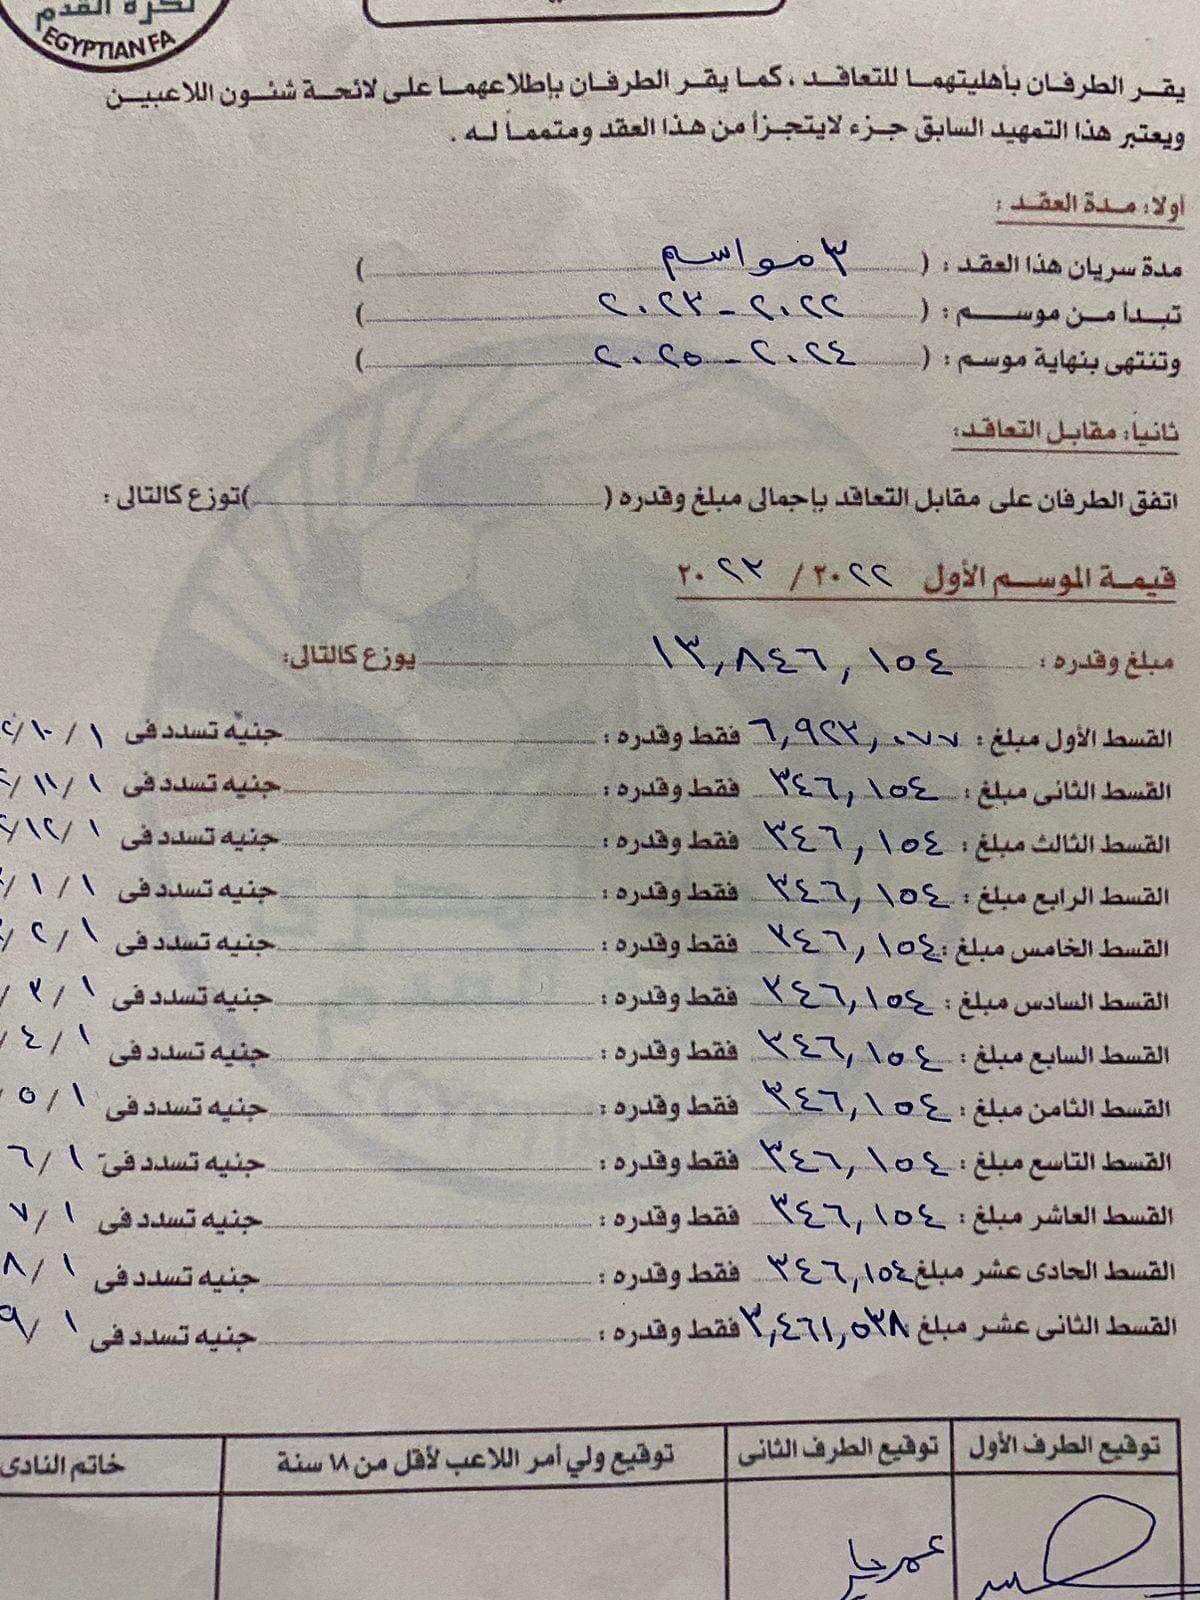 لكرة القدم
EGYPTIAN FA
يقر الطرفان بأهليتهما للتعاقد ، كما يقر الطرفان بإطلاعهما على لائحة شئون اللاعبين
ويعتبر هذا التمهيد السابق جزء لايتجزأ من هذا العقد ومتمماً له .
أولا: مدة العقد :
مدة سريان هذا العقد : ( ٣ مواسم )
تبدأ من موسم : ( ٢٠٢٢ - ٢٠٢٣ )
وتنتهى بنهاية موسم : ( ٢٠٢٤ - ٢٠٢٥ )
ثانياً: مقابل التعاقد:
اتفق الطرفان على مقابل التعاقد بإجمالى مبلغ وقدره ( )توزع كالتالى :
قيمة الموسم الأول ٢٠٢٢ / ٢٠٢٣
مبلغ وقدره : ١٣,٨٤٦,١٥٤ يوزع كالتالى:
القسط الأول مبلغ : ٦,٩٢٣,٠٧٧ فقط وقدره : جنيه تسدد فى ١ / ١٠ /
القسط الثانى مبلغ : ٣٤٦,١٥٤ فقط وقدره : جنيه تسدد فى ١ / ١١ /
القسط الثالث مبلغ : ٣٤٦,١٥٤ فقط وقدره : جنيه تسدد فى ١ / ١٢ /
القسط الرابع مبلغ : ٣٤٦,١٥٤ فقط وقدره : جنيه تسدد فى ١ / ١ /
القسط الخامس مبلغ : ٣٤٦,١٥٤ فقط وقدره : جنيه تسدد فى ١ / ٢ /
القسط السادس مبلغ : ٣٤٦,١٥٤ فقط وقدره : جنيه تسدد فى ١ / ٣ /
القسط السابع مبلغ : ٣٤٦,١٥٤ فقط وقدره : جنيه تسدد فى ١ / ٤ /
القسط الثامن مبلغ : ٣٤٦,١٥٤ فقط وقدره : جنيه تسدد فى ١ / ٥ /
القسط التاسع مبلغ : ٣٤٦,١٥٤ فقط وقدره : جنيه تسدد فى ١ / ٦
القسط العاشر مبلغ : ٣٤٦,١٥٤ فقط وقدره : جنيه تسدد فى ١ / ٧
القسط الحادى عشر مبلغ ٣٤٦,١٥٤ فقط وقدره : جنيه تسدد فى ١ / ٨
القسط الثانى عشر مبلغ ٣,٤٦١,٥٣٨ فقط وقدره : جنيه تسدد فى ١ / ٩
توقيع الطرف الأول توقيع الطرف الثانى توقيع ولي أمر اللاعب لأقل من ١٨ سنة خاتم النادى